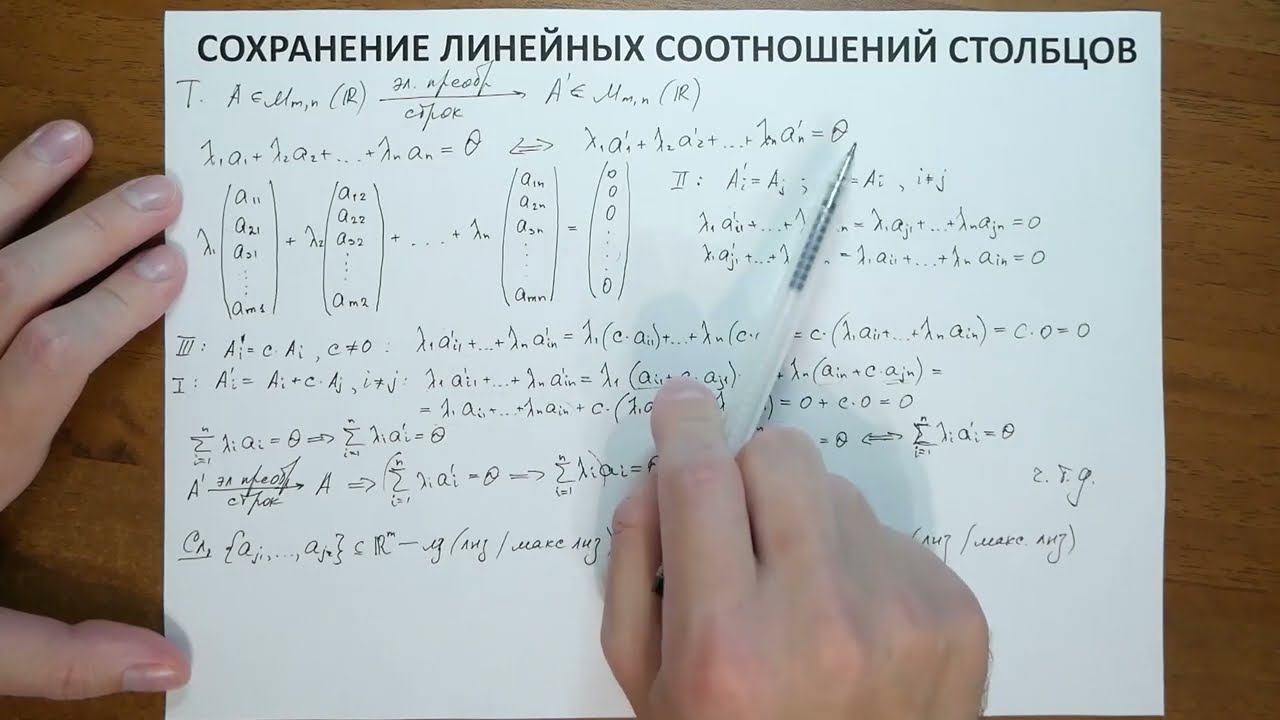 СОХРАНЕНИЕ ЛИНЕЙНЫХ СООТНОШЕНИЙ СТОЛБЦОВ
Т. A ∈ M_{m,n}(ℝ) —эл. преобр. строк→ A' ∈ M_{m,n}(ℝ)
λ₁a₁ + λ₂a₂ + ... + λₙaₙ = θ ⟺ λ₁a'₁ + λ₂a'₂ + ... + λₙa'ₙ = θ
λ₁ (a₁₁ a₂₁ a₃₁ ⋮ a_{m1}) + λ₂ (a₁₂ a₂₂ a₃₂ ⋮ a_{m2}) + ... + λₙ (a₁ₙ a₂ₙ a₃ₙ ⋮ a_{mn}) = (0 0 0 ⋮ 0)
II: A'ᵢ = Aⱼ ; = Aᵢ , i≠j
λ₁a'ᵢ₁ + ... + = λ₁aⱼ₁ + ... + λₙaⱼₙ = 0
λ₁a'ⱼ₁ + ... + = λ₁aᵢ₁ + ... + λₙaᵢₙ = 0
III: A'ᵢ = c·Aᵢ , c≠0 : λ₁a'ᵢ₁ + ... + λₙa'ᵢₙ = λ₁(c·aᵢ₁) + ... + λₙ(c· = c·(λ₁aᵢ₁ + ... + λₙaᵢₙ) = c·0 = 0
I: A'ᵢ = Aᵢ + c·Aⱼ , i≠j: λ₁a'ᵢ₁ + ... + λₙa'ᵢₙ = λ₁(aᵢ₁ + c·aⱼ₁) + λₙ(aᵢₙ + c·aⱼₙ) =
= λ₁aᵢ₁ + ... + λₙaᵢₙ + c·(λ₁a ) = 0 + c·0 = 0
∑_{i=1}^{n} λᵢaᵢ = θ ⟹ ∑_{i=1}^{n} λᵢa'ᵢ = θ
= θ ⟺ ∑_{i=1}^{n} λᵢa'ᵢ = θ
A' —эл. преобр. строк→ A ⟹ (∑_{i=1}^{n} λᵢa'ᵢ = θ ⟹ ∑_{i=1}^{n} λᵢaᵢ = θ
ч.т.д.
Сл. {a_{j₁}, ..., a_{jₖ}} ⊆ ℝᵐ — лз (лнз / макс лнз) (лнз / макс. лнз)